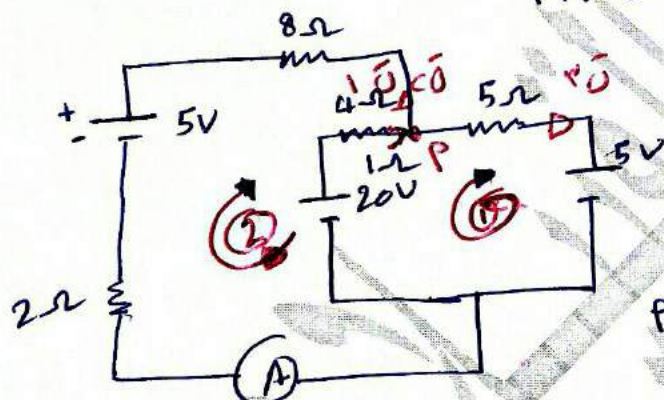 8Ω
+
-
5V
4Ω
5Ω
P
1Ω
20V
5V
2
1
2Ω
A